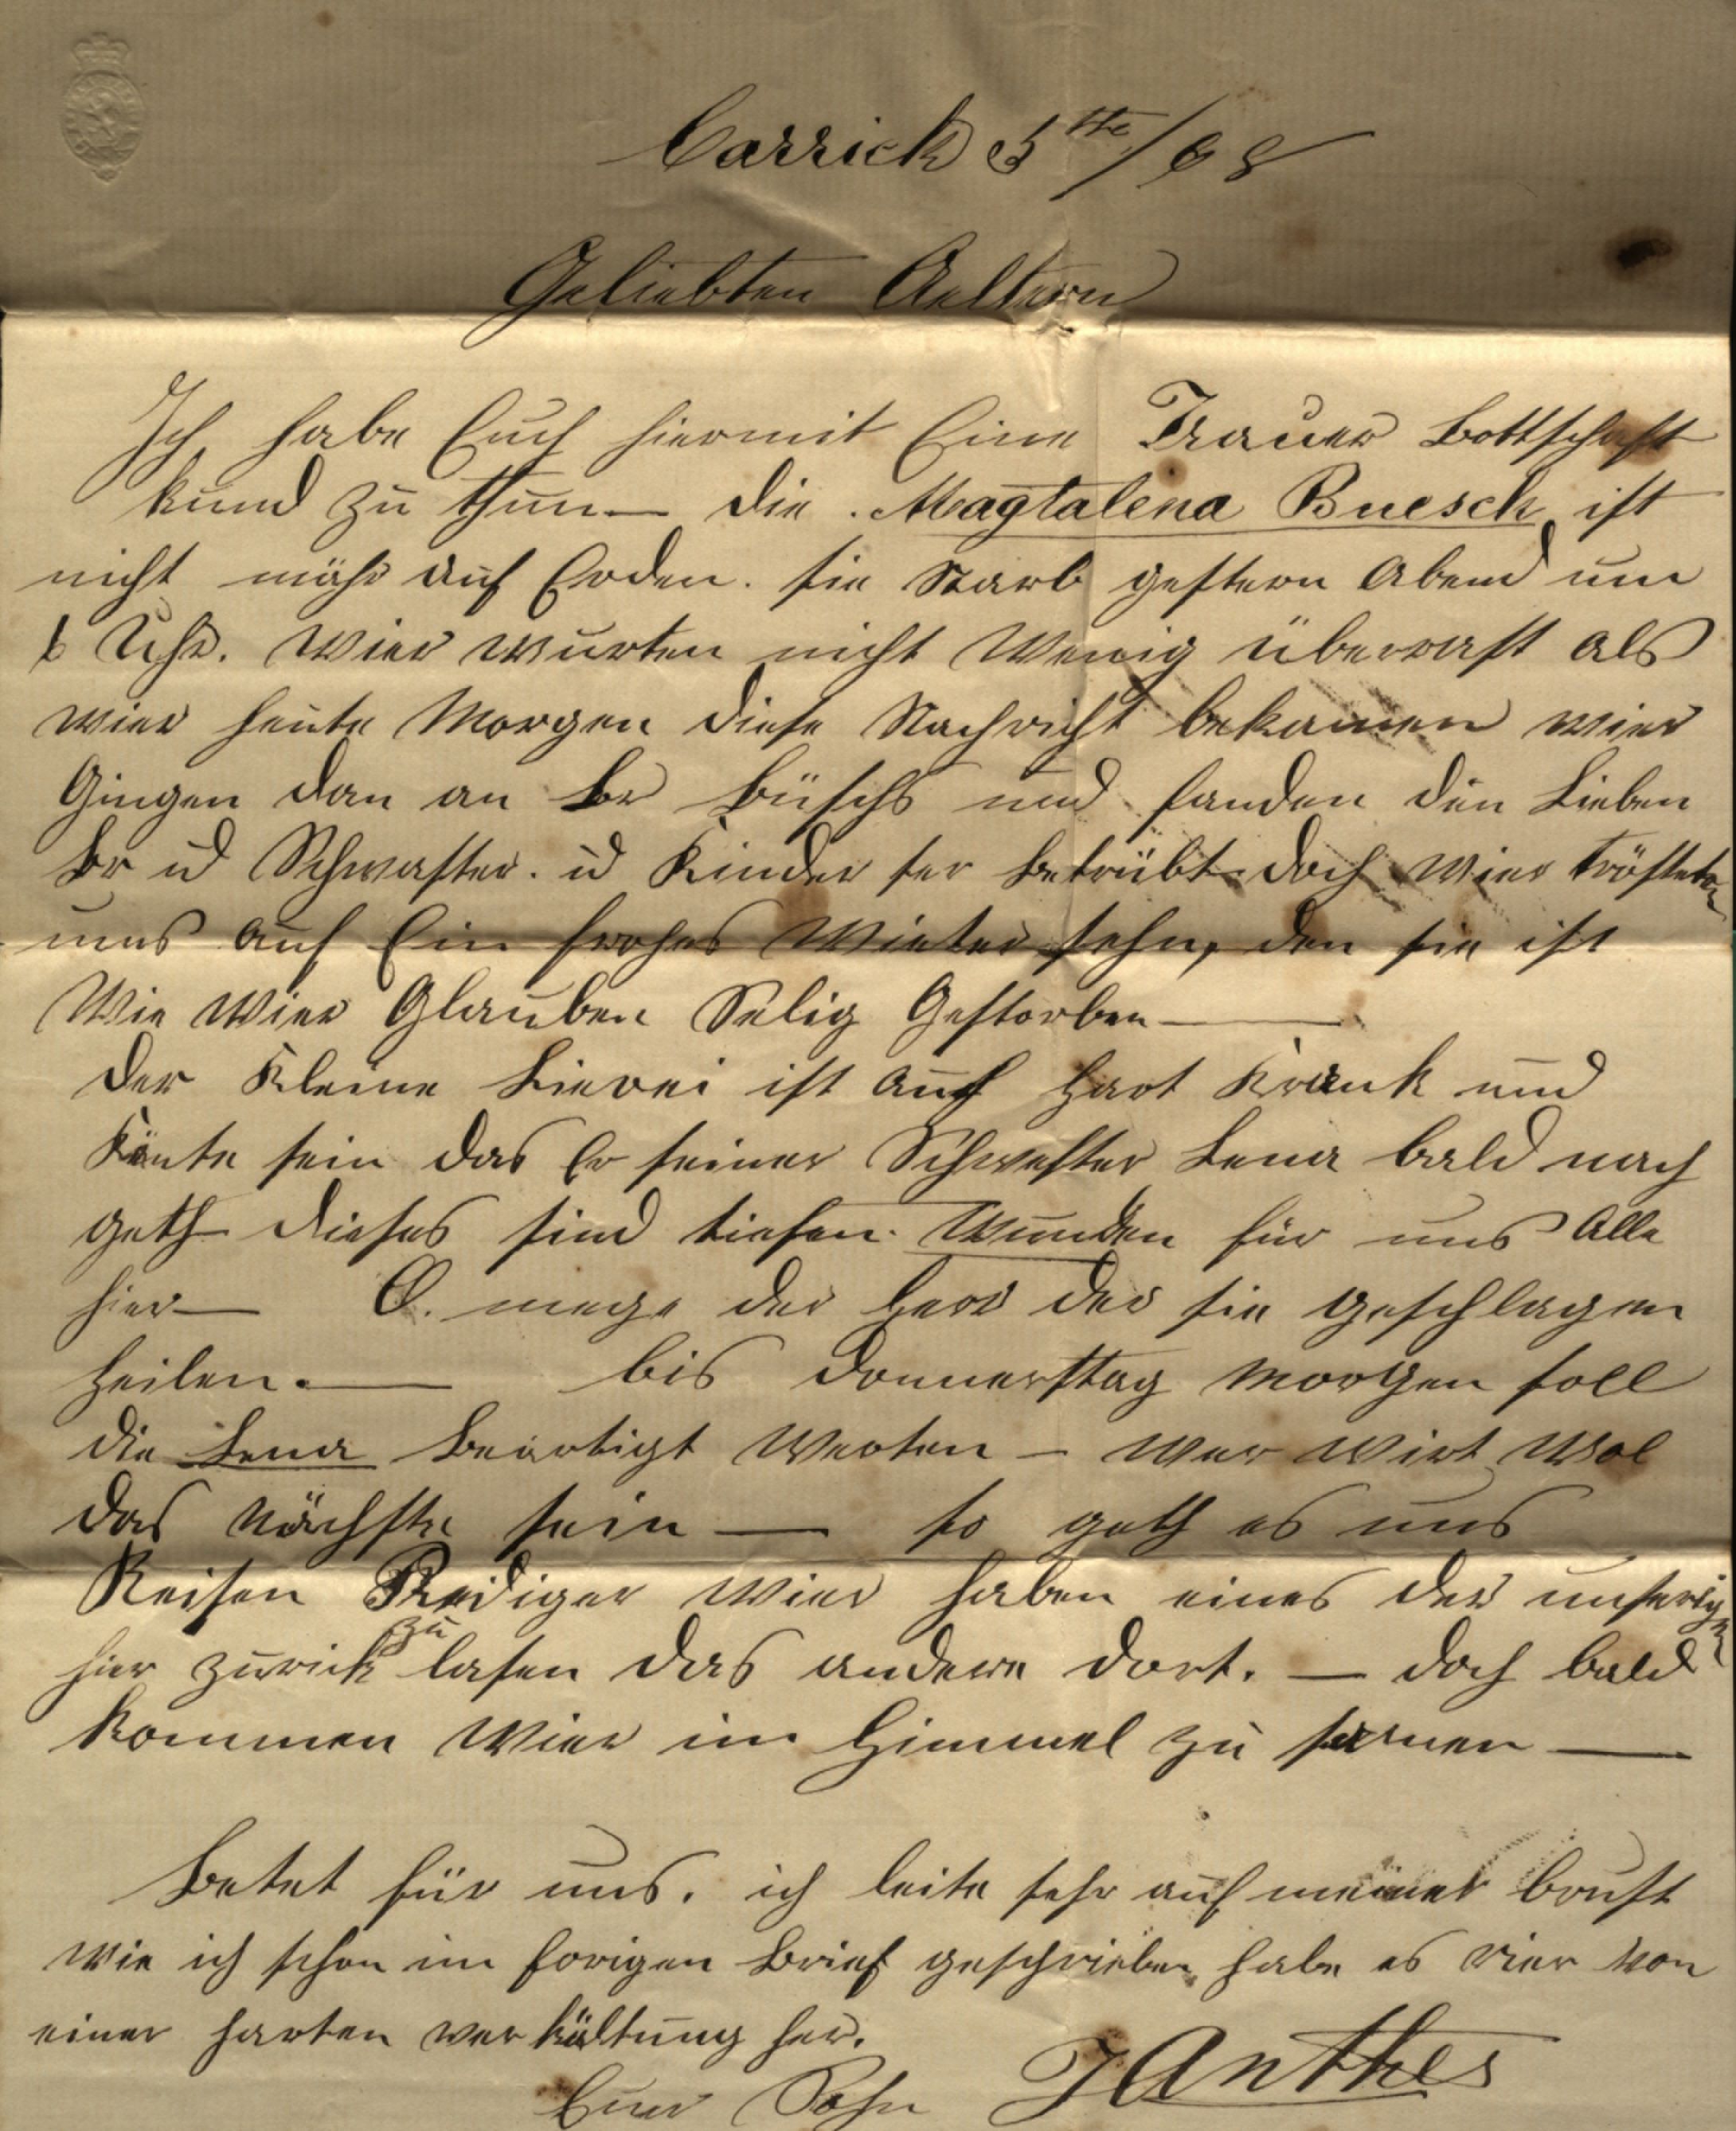 Carrick 5te/68
Geliebten Aeltern
Ich habe Euch hiermit Eine Trauer Bottschaft
kund zu thun — die Magtalena Buesch ist
nicht mähr auf Erden. sie Starb gestern Abend um
6 Uhr. Wier wurten nicht Wenig überrast als
wier heute Morgen diese Nachricht bekamen wier
Gingen dan an Br Büschs und fanden den Lieben
Br ud Schwaster. ud Kinder ser Betrübt doch Wier trösteten
uns auf Ein frohes Wieter sehn, den sie ist
Wie Wier Glauben Selig Gestorben —
der Kleine ist auch Hart Krank und
Könte sein das Er seiner Schwester Lena bald nach
geth dieses sind tiefen Wunden für uns Alle
hier — O. mege der Herr der sie geschlagen
Heilen. — bis Donnersttag Morgen soll
die Lena Beärtigt Werten — Wer Wirt Wol
das Nächste sein — so geth es uns
Reisen Prediger Wier haben eines der unserigen
hier zurick zu lasen das andere dort. — doch bald
kommen Wier im Himmel zu samen —
Betet für uns. ich leite sehr auf meiner brust
wie ich schon im forigen Brief geschrieben habe es von
einer harten verkältung her.
Euer Sohn J Anthes